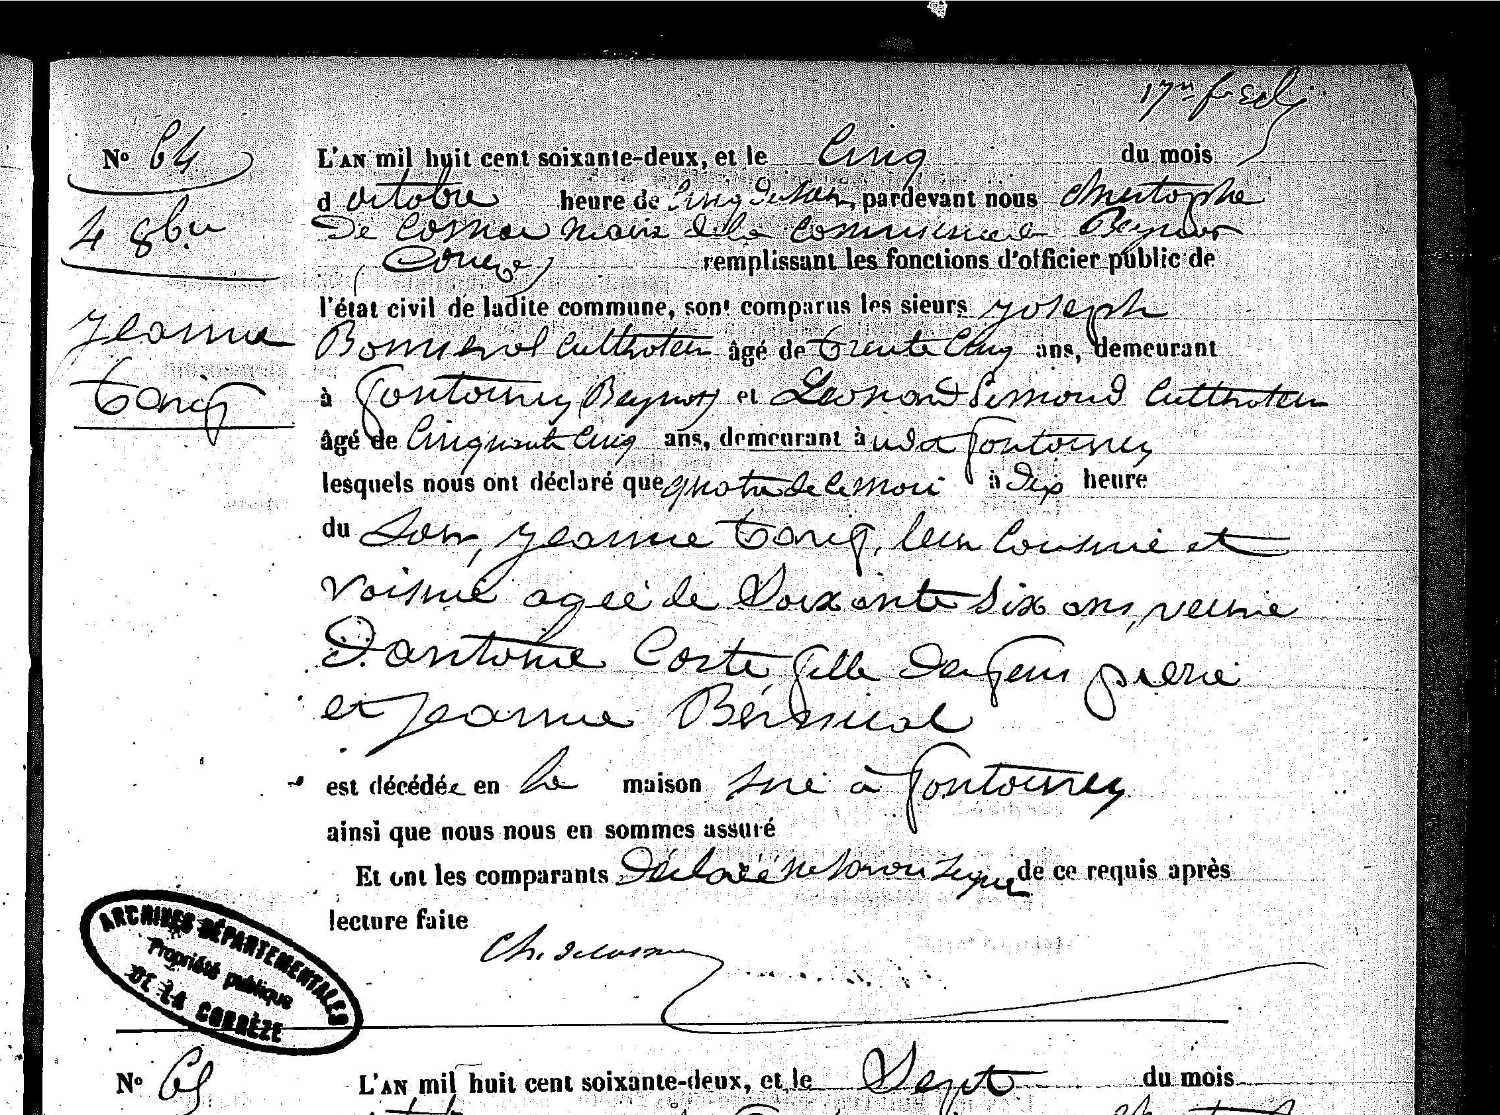 17me f. Sch
No 64
L'AN mil huit cent soixante-deux, et le Cinq du mois
d octobre heure de Cinq du Soir, pardevant nous Christophe
De Cosnac Maire de la Commune de Beynat
Correze remplissant les fonctions d'officier public de
4 8bre
l'état civil de ladite commune, sont comparus les sieurs Joseph
Jeanne
Tarif
Bouderol Cultivateur âgé de trente Cinq ans, demeurant
à Fontourcy Beynat et Leonard Simond Cultivateur
âgé de Cinquante Cinq ans, demeurant à udit Fontourcy
lesquels nous ont déclaré que quatre de ce mois à Dix heure
du Soir, Jeanne Tarif, leur Cousine et
voisine agée de Soixante Six ans, veuve
D'antoine Coste fille de feus pierre
et Jeanne
est décédée en la maison sue à Fontourcy
ainsi que nous nous en sommes assuré
Et ont les comparants Déclaré ne Savoir Signer de ce requis après
lecture faite
Ch. de Cosnac
ARCHIVES DÉPARTEMENTALES
Propriété publique
DE LA CORRÈZE
No 65
L'AN mil huit cent soixante-deux, et le Sept du mois